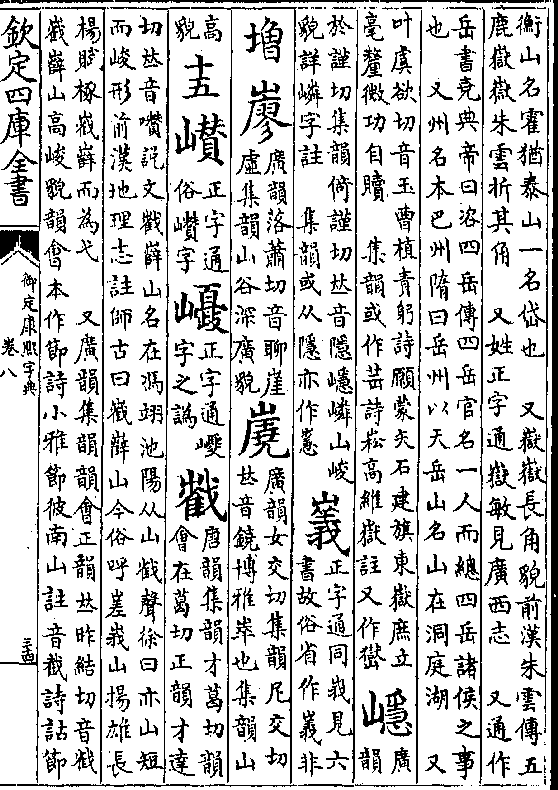 衡山名霍猶泰山一名岱也　又嶽嶽長角貌前漢朱雲傳五
鹿嶽嶽朱雲折其角　又姓正字通嶽敏見廣西志　又通作
岳書堯典帝曰咨四岳傳四岳官名一人而總四岳諸侯之事
也　又州名本巴州隋曰岳州以天岳山名山在洞庭湖　又
叶虞欲切音玉曹植責躬詩願蒙矢石建旗東嶽庶立
毫釐微功自贖　集韻或作𡶳詩崧高維嶽註又作㺉
㠥
廣韻
於謹切集韻倚謹切𠀤音隱㠥嶙山峻
貌詳嶙字註　集韻或从隱亦作㥯
㠖
正字通同峩見六
書故俗省作㠖非
增
嵺
廣韻落蕭切音聊崖
虛集韻山谷深廣貌
嶤
廣韻女交切集韻尼交切
𠀤音鐃博雅崒也集韻山
高
貌
十五
巑
正字通
俗巑字
㠨
正字通㠨
字之譌
巀
唐韻集韻才葛切韻
會在葛切正韻才達
切𠀤音囋說文巀嶭山名在馮翊池陽从山巀聲徐曰亦山短
而峻形前漢地理志註師古曰巀嶭山今俗呼嵳峩山揚雄長
楊賦椓巀嶭而為弋　又廣韻集韻韻會正韻𠀤昨結切音截
巀嶭山高峻貌韻會本作節詩小雅節彼南山註音截詩詁節
欽定四庫全書
御定康熙字典
卷八
三十四